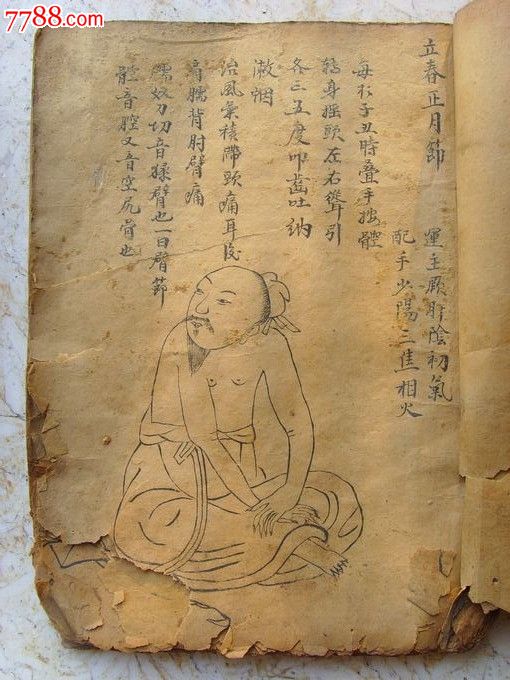 7788.com
中国收藏热线
立春正月節
運主厥肝陰初氣
配手少陽三焦相火
每於子丑時疊手按髀
轉身摇頭左右聳引
各三五度叩齒吐納
漱咽
治風氣積帶頸痛耳後
肩臑背肘臂痛
臑奴刀切音猱臂也一曰臂節
髖音腔又音空尻骨也